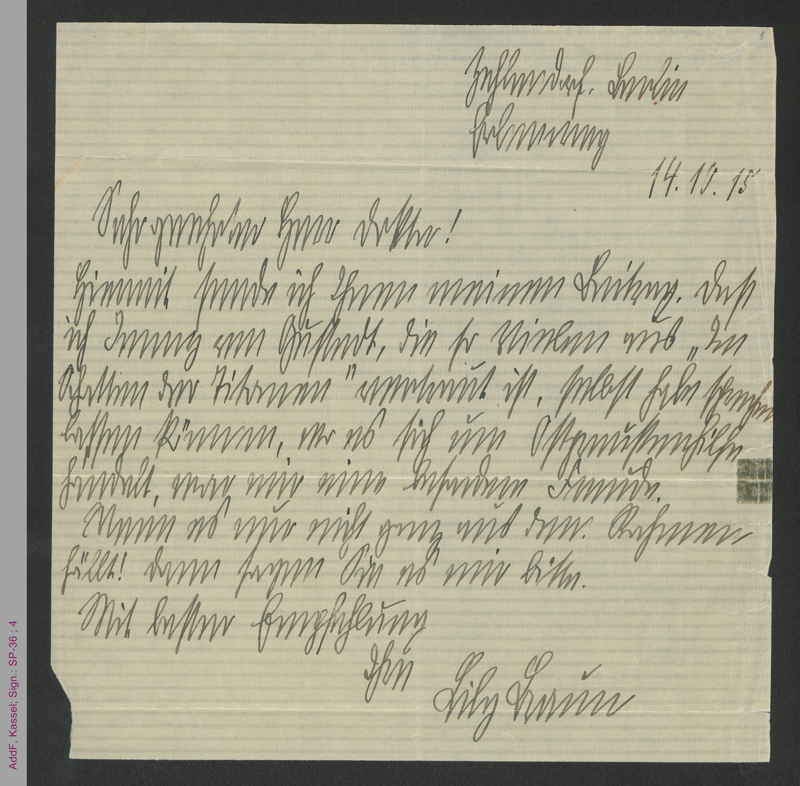 Zehlendorf. Berlin
Erlenweg
14.10.15
Sehr geehrter Herr Doktor!
Hiermit sende ich Ihnen meinen Beitrag. Dass
ich Jenny von Gustedt, die so Vielen aus „Im
Schatten der Titanen" vertraut ist, selbst habe sprechen
lassen können, wo es sich um Ostpreussenhilfe
handelt, war mir eine besondere Freude.
Wenn es nur nicht ganz aus dem Rahmen
fällt! Dann sagen Sie es mir bitte.
Mit bester Empfehlung
Ihre
Lily Braun
AddF, Kassel; Sign.: SP-36 ; 4